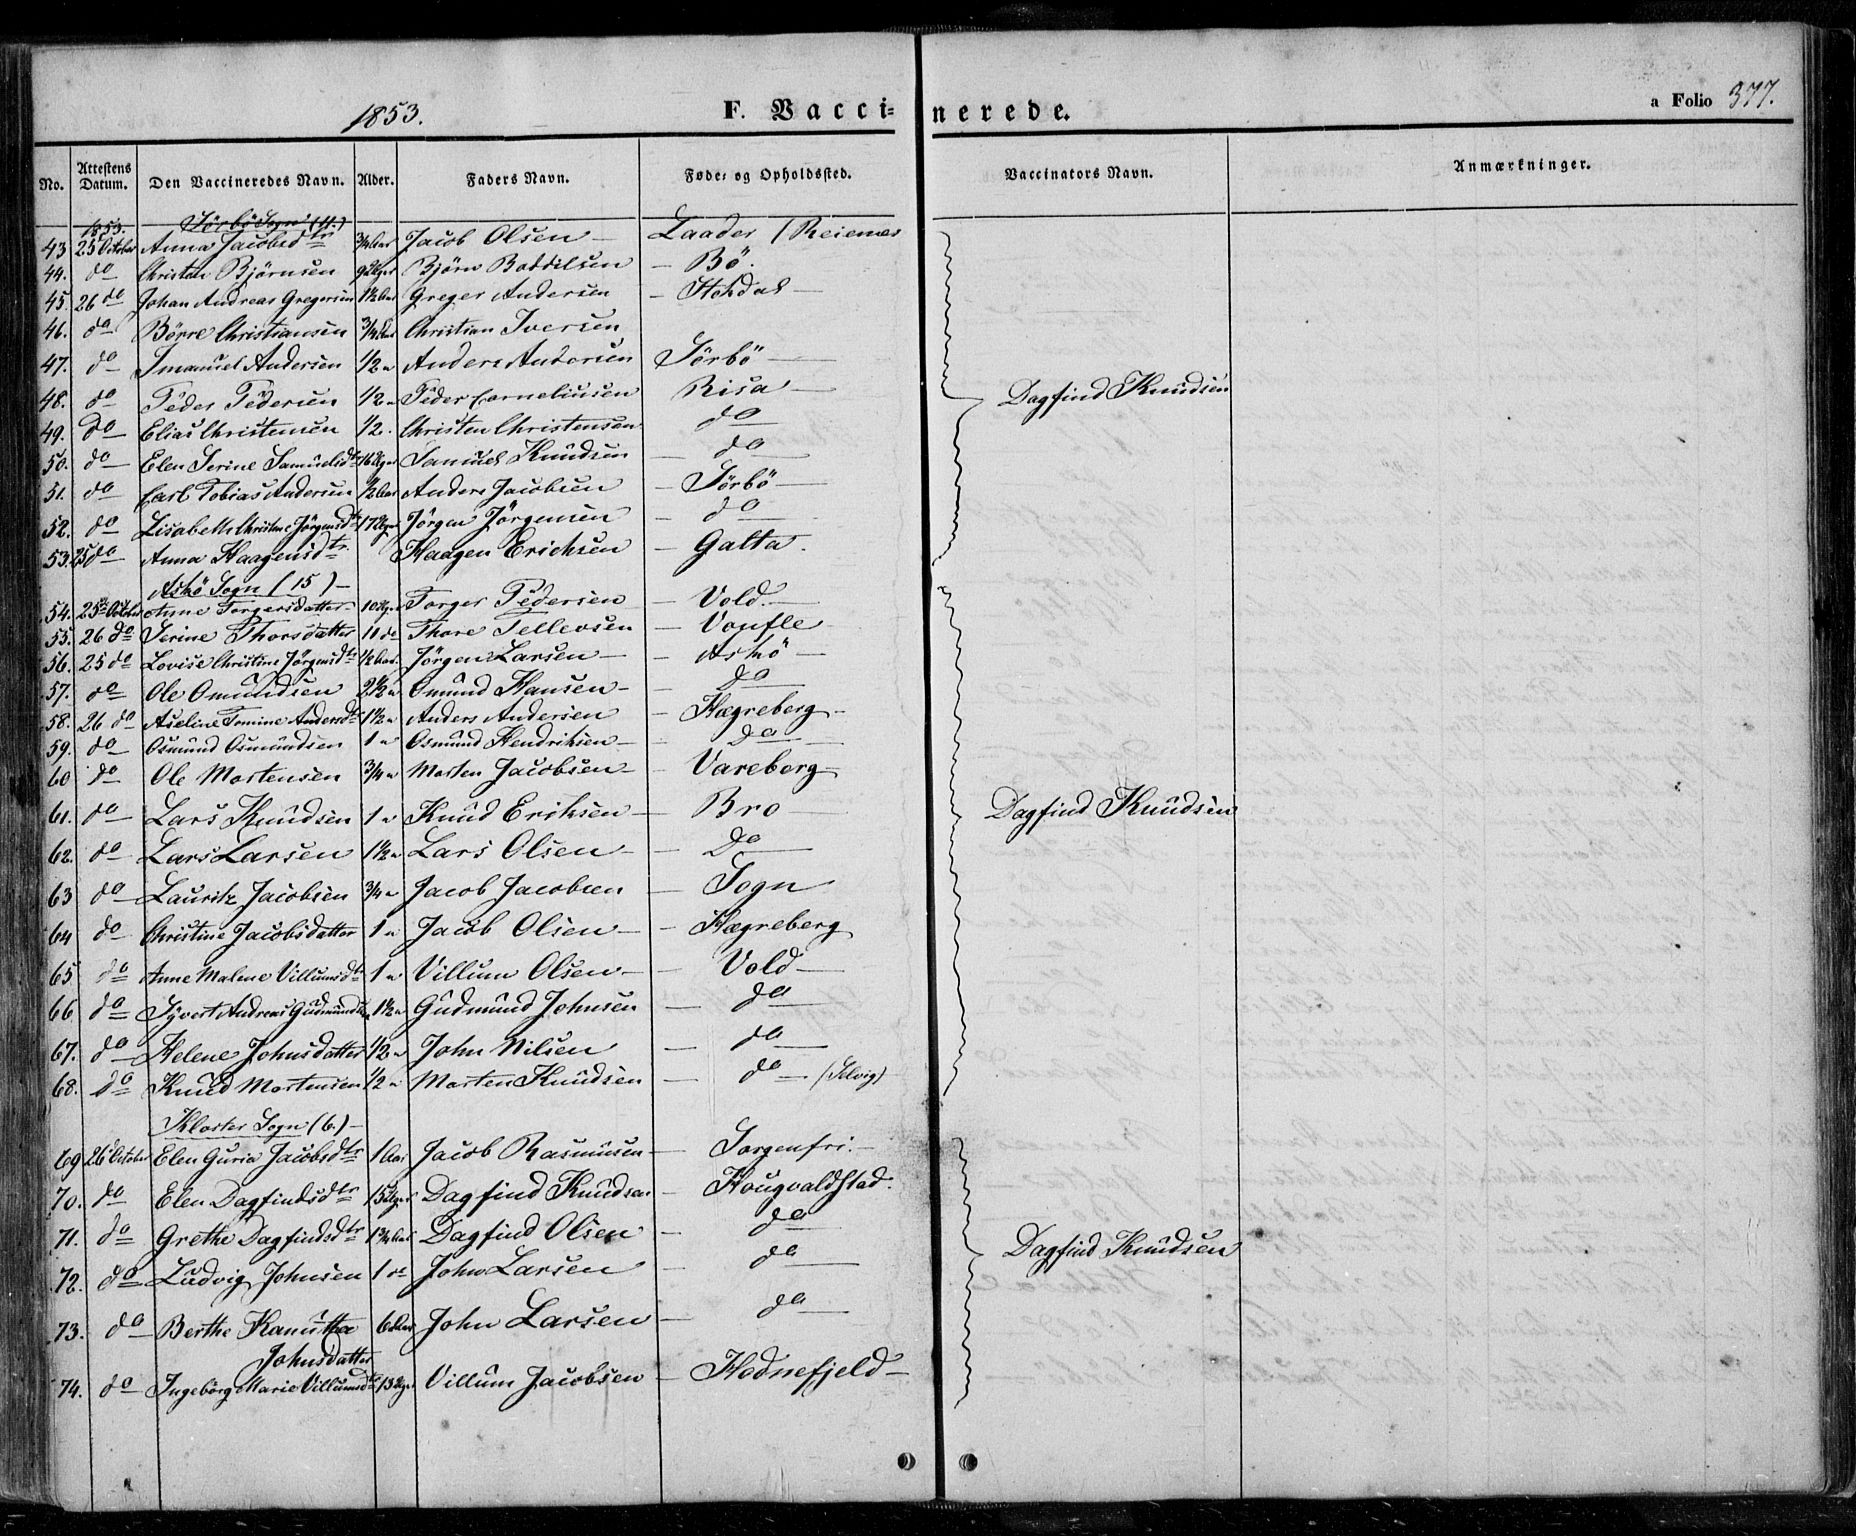 1853.
F. Vaccinerede.
a Folio 377.
No. Attestens Datum. Den Vaccineredes Navn. Alder. Faders Navn. Føde- og Opholdssted. Vaccinators Navn. Anmærkninger.
1853. Sörbö Sogn (11.)
43 25 October Anna Jacobsdtr 3/4 Aar Jacob Olsen – Laader / Reienæs
44. do Christen Björnsen 9 Uger Björn Boddilsen – Bö.
45. 26 do Johan Andreas Gregersen 1 1/2 Aar Greger Andersen – Stokdal
46. do Börre Christiansen 3/4 Aar Christian Iversen
47. do Imanuel Andersen 1/2 " Anders Andersen Sörbö
48. do Peder Pedersen 1/2 " Peder Corneliusen Risa
49. do Elias Christensen 1/2. Christen Christensen do
50. do Elen Serine Samuelsdtr 16 Uger Samuel Knudsen – do
51. do Carl Tobias Andersen 1/2 Aar Anders Jacobsen – Sörbö
52. do Lisabeth Christine Jörgensdtr 17 Uger Jörgen Jörgensen – do
53. 25 do Anna Haagensdtr Haagen Erichsen – Galta.
Askö Sogn (15) –
54. 25de October Anne Torgersdatter 10 Uger Torger Pedersen – Vold.
55. 26 do Serine Thorsdatter 10 do Thore Tellevsen – Voufle
56. 25 do Lovise Christine Jörgensdtr 1/2 Aar. Jörgen Larsen – Askö
57. do Ole Omundsen 2 1/2 " Omund Hansen – do
58. 26 do Aseline Tomine Andersdtr 1 1/2 " Anders Andersen – Hægreberg
59. do Osmund Osmundsen 1 " Osmund Hendriksen – do
60 do Ole Mortensen 3/4 " Morten Jacobsen – Vareberg
61. do Lars Knudsen 1 " Knud Eriksen – Bro
62. do Lars Larsen 1 1/2 " Lars Olsen – Do
63 do Lauritz Jacobsen 3/4 " Jacob Jacobsen – Sogn
64 do Christine Jacobsdatter 1 " Jacob Olsen – Hægreberg
65 do Anne Malene Villumsdtr 1 " Villum Olsen – Vold
66 do Syvert Andreas Gudmunds. 1 1/2 " Gudmund Johnsen – do
67. do Helene Johnsdatter 1/2 " John Nilsen – do
68. do Knud Mortensen 1/2 " Morten Knudsen – do (Selvig)
Kloster Sogn (6.) –
69 26 October Elen Guria Jacobsdtr 1 Aar Jacob Rasmusen – Sorgenfri.
70. do Elen Dagfindsdtr 15 Uger Dagfind Knudsen – Hougvaldstad.
71. do Grethe Dagfindsdtr 1 3/4 Aar Dagfind Olsen – do
72. do Ludvig Johnsen 1 do John Larsen – do
73. do Berthe Kanutha 6 Aar John Larsen – do
Johnsdatter
74. do Ingeborg Marie Villumsdtr 13 Uger Villum Jacobsen – Hodnefjeld –
Dagfind Knudsen
Dagfind Knudsen
Dagfind Knudsen